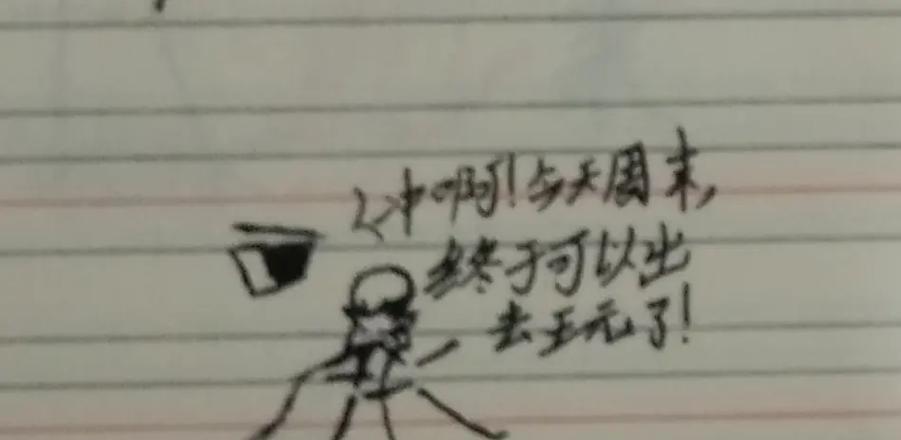 冲啊!今天周末,
终于可以出
去玩了!